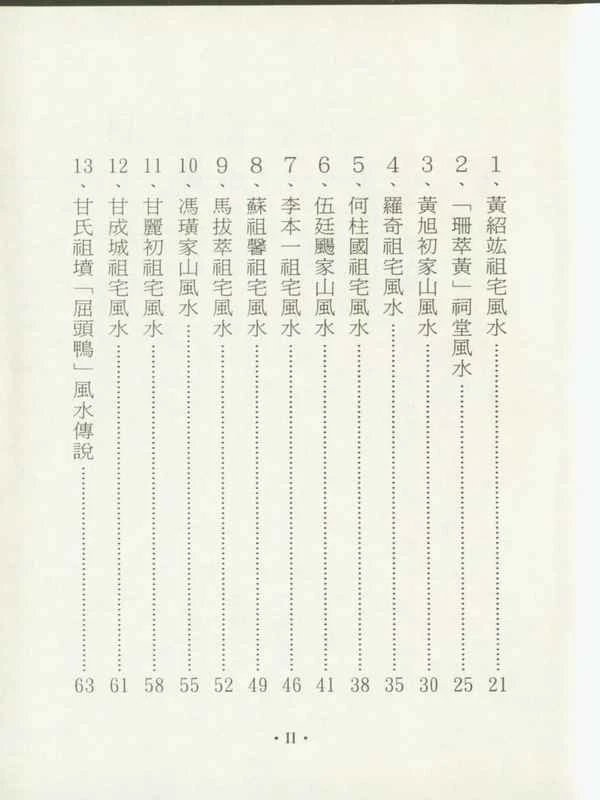 1、黃紹竑祖宅風水……21
2、「珊萃黃」祠堂風水……25
3、黃旭初家山風水……30
4、羅奇祖宅風水……35
5、何柱國祖宅風水……38
6、伍廷颺家山風水……41
7、李本一祖宅風水……46
8、蘇祖馨祖宅風水……49
9、馬拔萃祖宅風水……52
10、馮璜家山風水……55
11、甘麗初祖宅風水……58
12、甘成城祖宅風水……61
13、甘氏祖墳「屈頭鴨」風水傳說……63
·II·